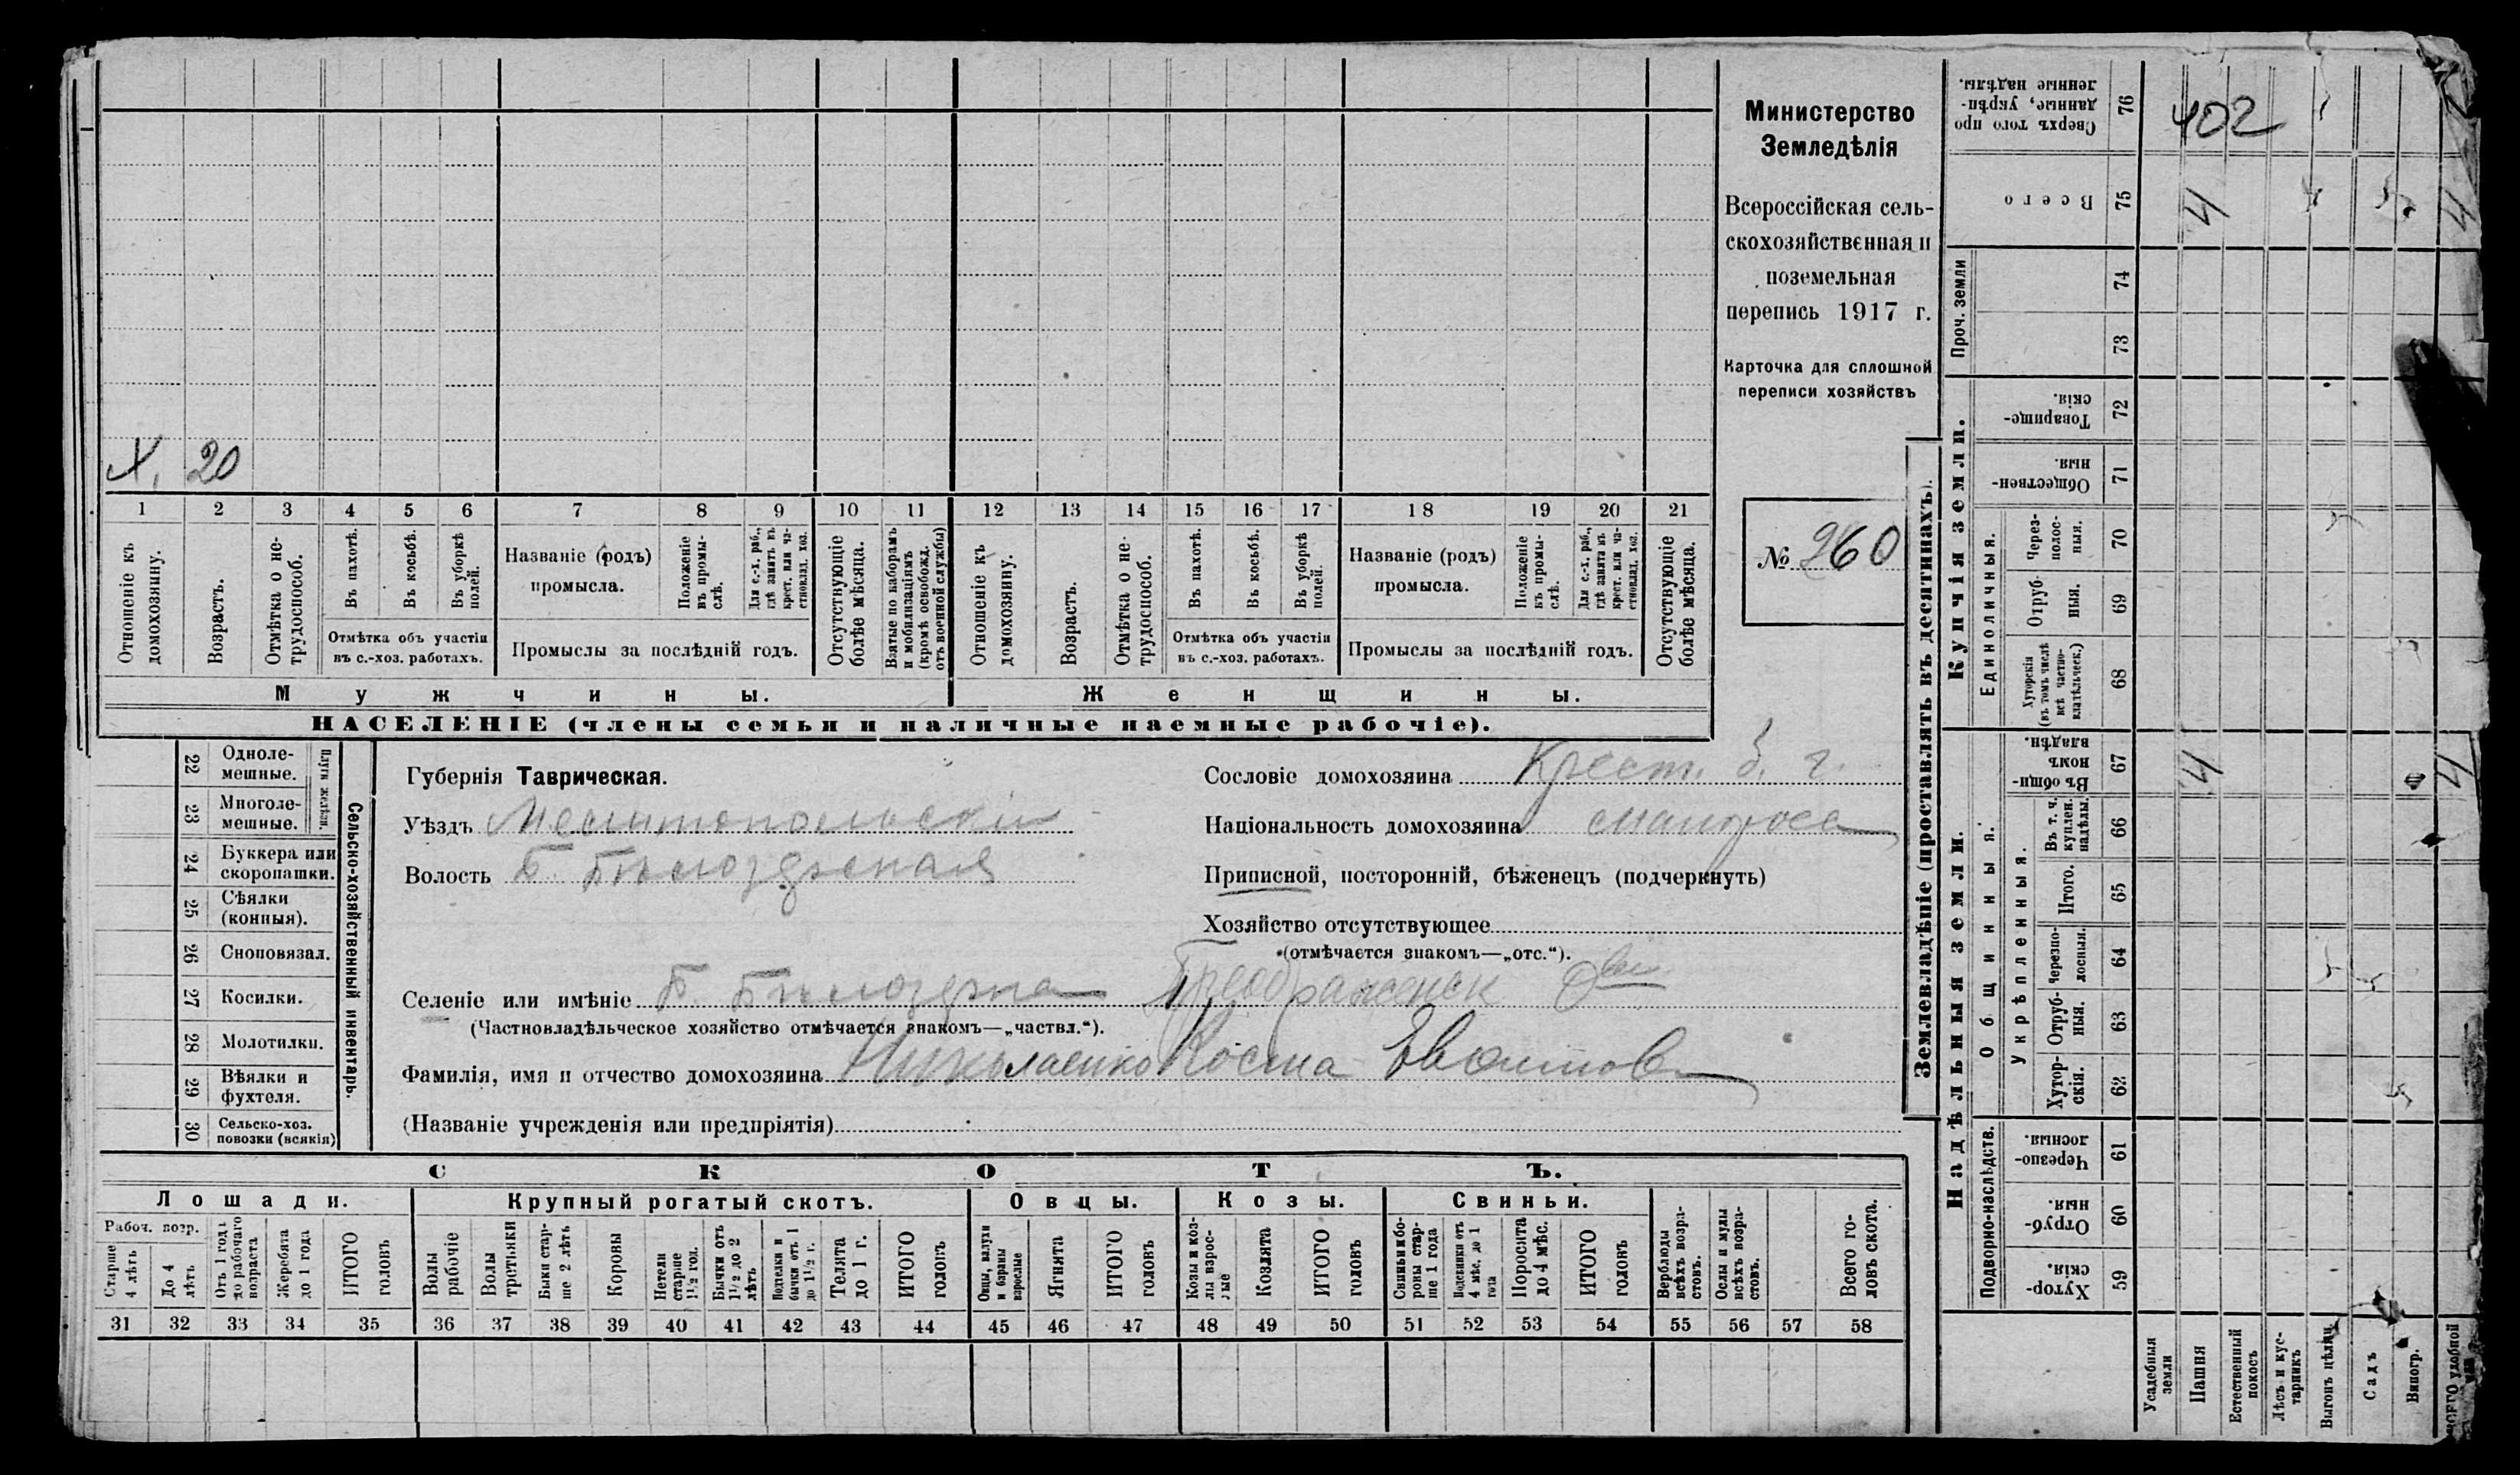 Министерство
Земледѣлія
Всероссійская сель-
скохозяйственная и
поземельная
перепись 1917 г.
Карточка для сплошной
переписи хозяйствъ
№ 260
Х. 20
1 2 3 4 5 6 7 8 9 10 11 12 13 14 15 16 17 18 19 20 21
Отношеніе къ домохозяину.
Возрастъ.
Отмѣтка о не-трудоспособ.
Въ пахотѣ.
Въ косьбѣ.
Въ уборкѣ полей.
Отмѣтка объ участіи
въ с.-хоз. работахъ.
Названіе (родъ)
промысла.
Положеніе въ промы-слѣ.
Для с.-х. раб., гдѣ занятъ въ крест. или ча-стновлад. хоз.
Промыслы за послѣдній годъ.
Отсутствующіе болѣе мѣсяца.
Взятые по наборамъ и мобилизаціямъ (кромѣ освобожд. отъ военной службы)
Отношеніе къ домохозяину.
Возрастъ.
Отмѣтка о не-трудоспособ.
Въ пахотѣ.
Въ косьбѣ.
Въ уборкѣ полей.
Отмѣтка объ участіи
въ с.-хоз. работахъ.
Названіе (родъ)
промысла.
Положеніе въ промы-слѣ.
Для с.-х. раб., гдѣ занята въ крест. или ча-стновлад. хоз.
Промыслы за послѣдній годъ.
Отсутствующіе болѣе мѣсяца.
Мужчины.
Женщины.
НАСЕЛЕНІЕ (члены семьи и наличные наемные рабочіе).
22 Одноле-мешные.
23 Многоле-мешные.
Плуги желѣзн.
24 Буккера или скоропашки.
25 Сѣялки (конныя).
26 Сноповязал.
27 Косилки.
28 Молотилки.
29 Вѣялки и фухтеля.
30 Сельско-хоз. повозки (всякія)
Сельско-хозяйственный инвентарь.
Губернія Таврическая.
Уѣздъ Мелитопольскій
Волость Б. Бѣлозерская
Сословіе домохозяина Крест.
Національность домохозяина малоросс
Приписной, посторонній, бѣженецъ (подчеркнуть)
Хозяйство отсутствующее
(отмѣчается знакомъ—„отс.“).
Селеніе или имѣніе Б. Бѣлозерка Преображенск
(Частновладѣльческое хозяйство отмѣчается знакомъ—„частвл.“).
Фамилія, имя и отчество домохозяина Николаенко Косма
(Названіе учрежденія или предпріятія)
СКОТЪ.
Лошади.
Крупный рогатый скотъ.
Овцы.
Козы.
Свиньи.
Рабоч. возр.
Старше 4 лѣтъ
До 4 лѣтъ
Отъ 1 года до рабочаго возраста
Жеребята до 1 года
ИТОГО головъ
Волы рабочіе
Волы третьяки
Быки стар-ше 2 лѣтъ
Коровы
Нетели старше 1½ год.
Бычки отъ 1½ до 2 лѣтъ
Подтелки и бычки отъ 1 до 1½ г.
Телята до 1 г.
ИТОГО головъ
Овцы, валухи и бараны взрослые
Ягнята
ИТОГО головъ
Козы и коз-лы взрос-лые
Козлята
ИТОГО головъ
Свиньи и бо-ровы стар-ше 1 года
Подсвинки отъ 4 мѣс. до 1 года
Поросята до 4 мѣс.
ИТОГО головъ
Верблюды всѣхъ возра-стовъ.
Ослы и мулы всѣхъ возра-стовъ.
Всего го-ловъ скота.
31 32 33 34 35 36 37 38 39 40 41 42 43 44 45 46 47 48 49 50 51 52 53 54 55 56 57 58
Землевладѣніе (проставлять въ десятинахъ).
Надѣльныя земли.
Купчія земли.
Проч. земли
Подворно-наслѣдств.
Общинныя.
Укрѣпленныя.
Единоличныя.
Хутор-скія. 59
Отруб-ныя. 60
Черезпо-лосныя. 61
Хутор-скія. 62
Отруб-ныя. 63
Черезпо-лосныя. 64
Итого. 65
Въ т. ч. куплен. надѣлы. 66
Въ общин-номъ владѣн. 67
Хуторскія (въ томъ числѣ всѣ частно-владѣльческ.) 68
Отруб-ныя. 69
Через-полос-ныя. 70
Обществен-ныя. 71
Товарище-скія. 72
73
74
Всего 75
Сверхъ того про-данные, укрѣп-ленные надѣлы. 76
Усадебныя земли
Пашня
Естественный покосъ
Лѣсъ и кус-тарникъ
Выгонъ цѣлин.
Садъ
Виногр.
ВСЕГО удобной
402
4
4
4
4